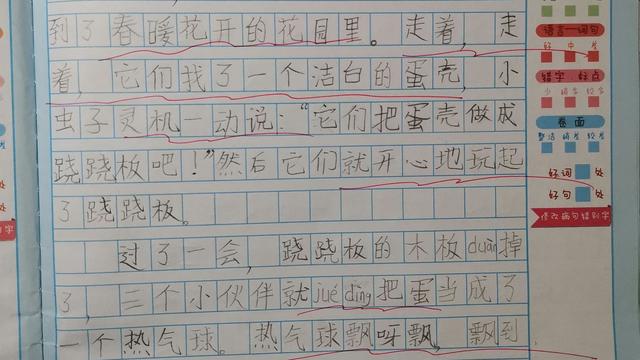 到了春暖花开的花园里。走着，走
着，它们找了一个洁白的蛋壳，小
虫子灵机一动说：“它们把蛋壳做成
跷跷板吧！”然后它们就开心地玩起
了跷跷板。
过了一会，跷跷板的木板duàn掉
了，三个小伙伴就jué dìng把蛋当成了
一个热气球。热气球飘呀飘，飘到
语言—词句
好 中 差
错字 标点
少 较多
卷面
整洁 较差
好词 处
好句 处
修改病句错别字
处
处
字